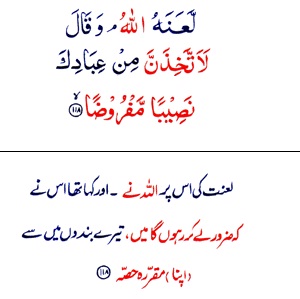 لَّعَنَهُ اللّٰهُ ۘ وَقَالَ
لَاَتَّخِذَنَّ مِنْ عِبَادِكَ
نَصِيْبًا مَّفْرُوْضًا ﴿١١٨﴾
لعنت کی اس پر اللہ نے ۔ اور کہا تھا اس نے
کہ ضرور لے کر رہوں گا میں، تیرے بندوں میں سے
(اپنا) مقرّرہ حصّہ ﴿١١٨﴾